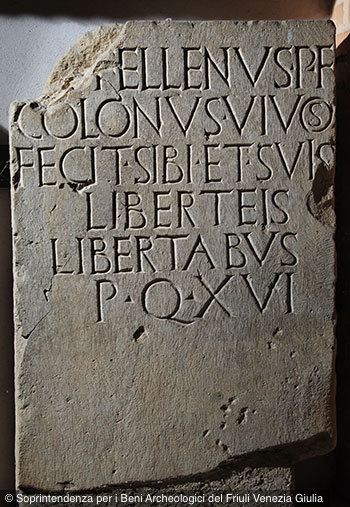 RELLENVS P F
COLONVS VIVOS
FECIT·SIBI·ET·SVIS
LIBERTEIS
LIBERTABVS
P·Q·XVI
© Soprintendenza per i Beni Archeologici del Friuli Venezia Giulia